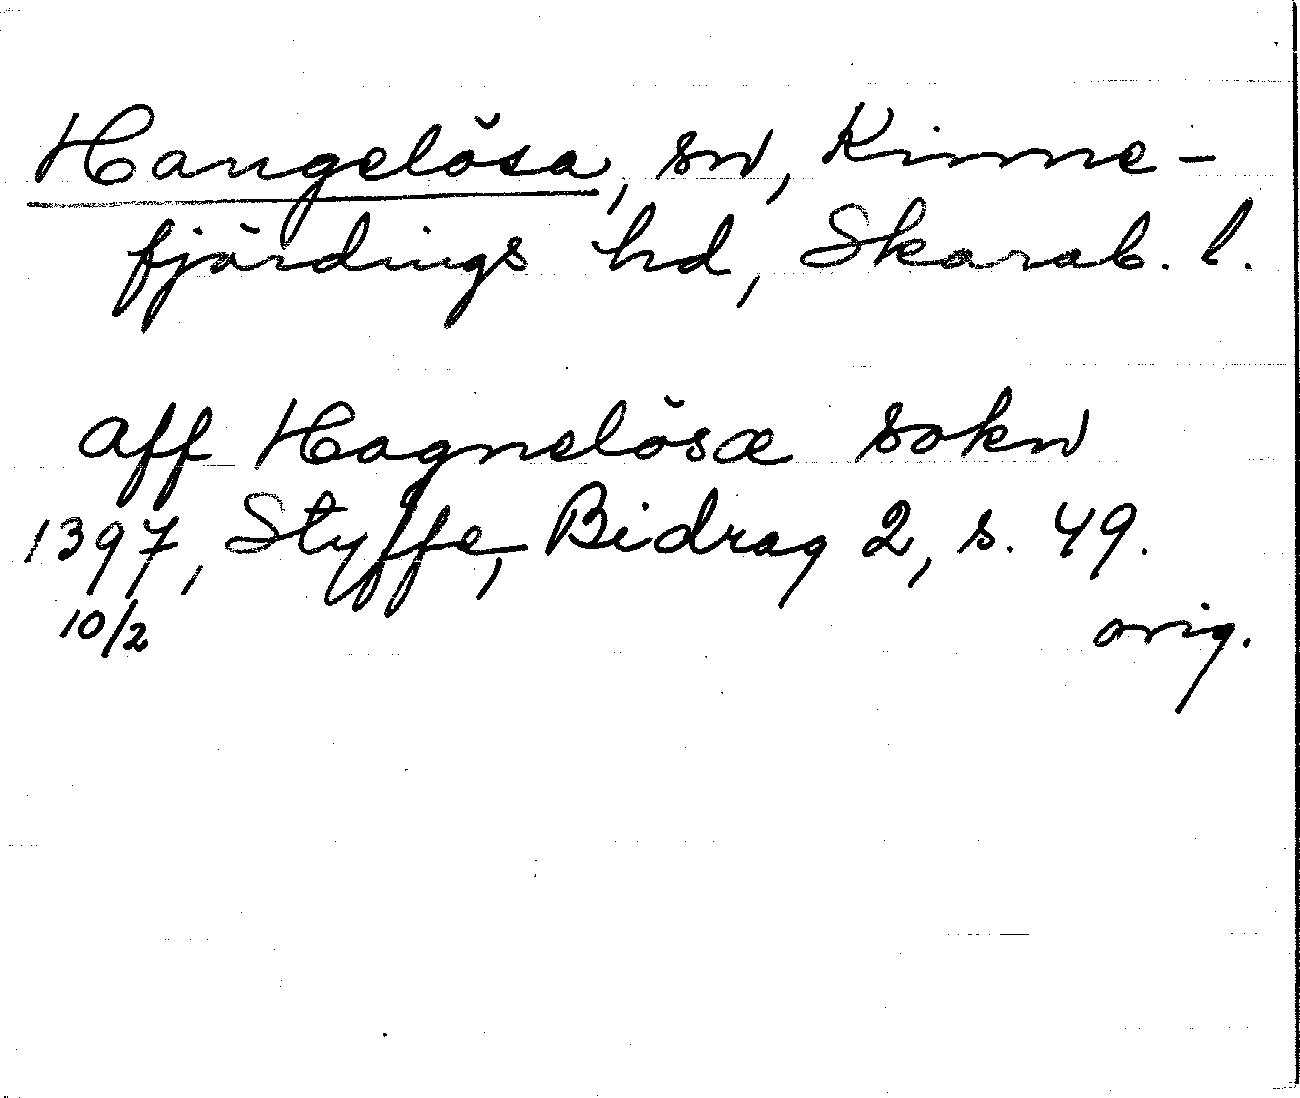 Hangelösa, sn, Kinne-
fjärdings hd, Skarab. l.
aff Hagnelösæ sokn
1397, Styffe, Bidrag 2, s. 49.
10/2 orig.